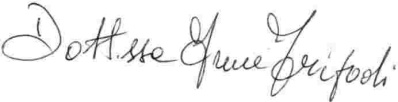 Dott.ssa Irene Trifodi